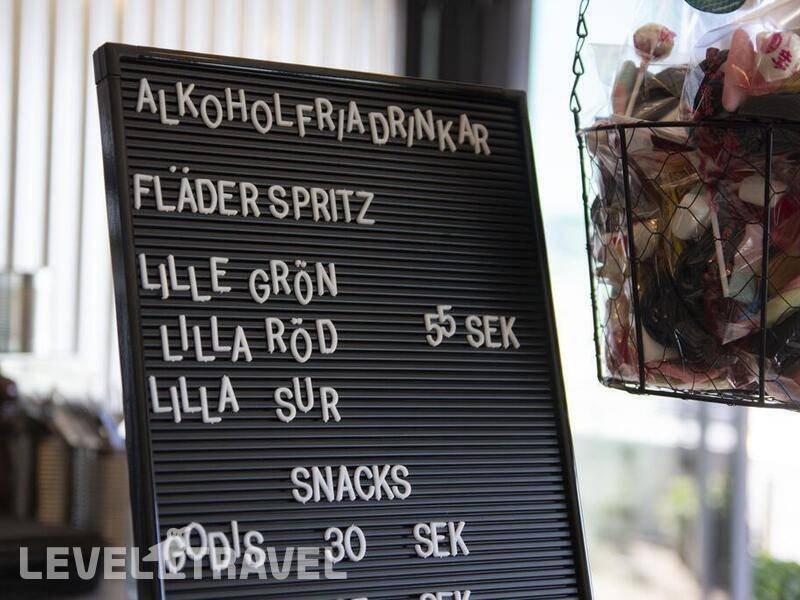 ALKOHOLFRIA DRINKAR
FLÄDERSPRITZ
LILLE GRÖN
LILLA RÖD 55 SEK
LILLA SUR
SNACKS
GODIS 30 SEK
SEK
LEVEL TRAVEL